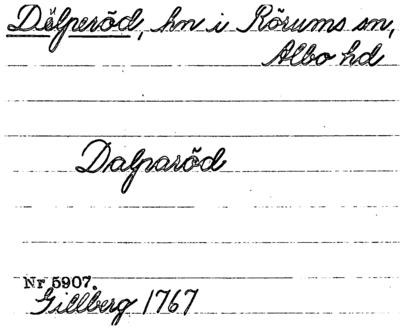 Dälperöd, hn i Rörums sn,
Albo hd
Dalparöd
Nr 5907.
Gillberg 1767